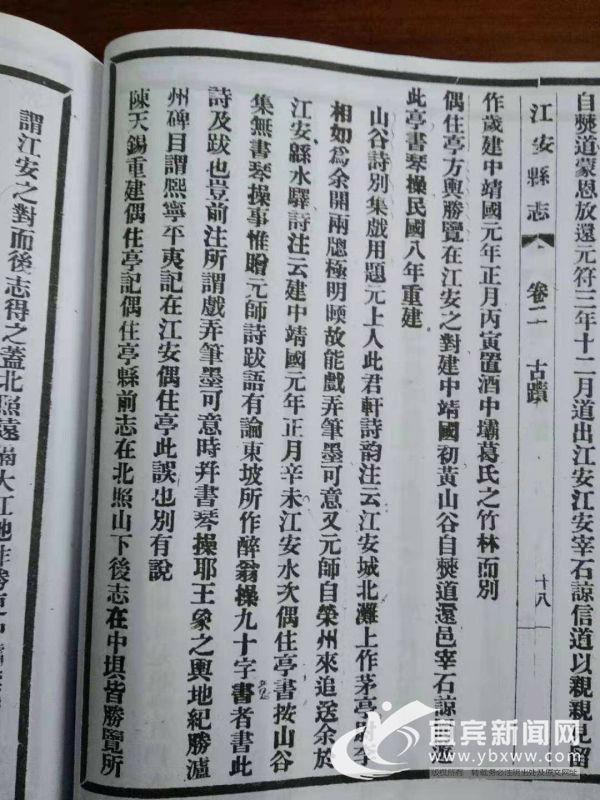 自僰道蒙恩放還元符三年十二月道出江安江安宰石諒信道以親親見留
江安縣志 卷二 古蹟 十八
作歲建中靖國元年正月丙寅置酒中壩葛氏之竹林而別
偶住亭方輿勝覽在江安之對建中靖國初黃山谷自僰道還邑宰石諒
此亭書琴操民國八年重建
山谷詩別集戲用題元上人此君軒詩韵注云江安城北灘上作茅亭
相如爲余開兩牕極明頤故能戲弄筆墨可意又元師自榮州來追送余於
江安縣水驛詩注云建中靖國元年正月辛未江安水次偶住亭書按山谷
集無書琴操事惟贈元師詩跋語有論東坡所作醉翁操九十字書者書此
詩及跋也豈前注所謂戲弄筆墨可意時幷書琴操耶王象之輿地紀勝瀘
州碑目謂熙寧平夷記在江安偶住亭此誤也別有說
陳天錫重建偶住亭記偶住亭縣前志在北照山下後志在中垻皆勝覽所
謂江安之對而後志得之蓋北照遠 大江地
宜宾新闻网
www.ybxww.com
版权所有 转载务必注明出处及原文网址